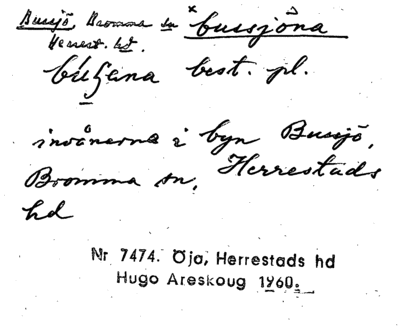 Bussjö, Bromma sn × bussjåna
Herrest. hd.
best. pl.
invånerna i byn Bussjö,
Bromma sn, Herrestads
hd
Nr 7474. Öja, Herrestads hd
Hugo Areskoug 1960.